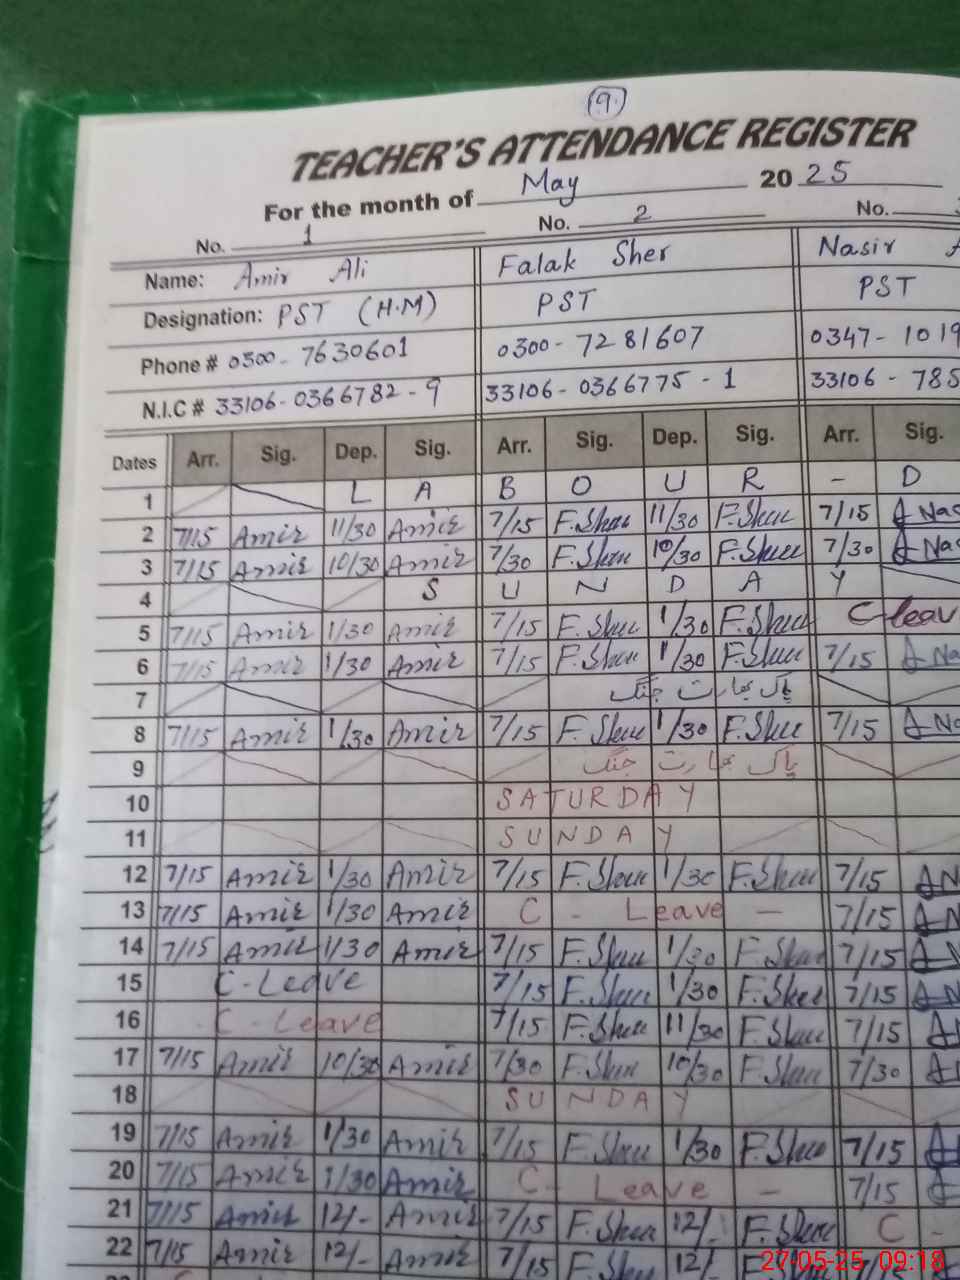 9
TEACHER'S ATTENDANCE REGISTER
For the month of May 2025
No. 1 No. 2 No.
Name: Amir Ali Falak Sher Nasir A
Designation: PST (H.M) PST PST
Phone # 0300-7630601 0300-7281607 0347-1019
N.I.C # 33106-0366782-9 33106-0366775-1 33106-785
Dates Arr. Sig. Dep. Sig. Arr. Sig. Dep. Sig. Arr. Sig.
1 L A B O U R - D
2 7/15 Amir 11/30 Amir 7/15 F.Sher 11/30 F.Sher 7/15 Nas
3 7/15 Amir 10/30 Amir 7/30 F.Sher 10/30 F.Sher 7/30 Nas
4 S U N D A Y
5 7/15 Amir 1/30 Amir 7/15 F.Sher 1/30 F.Sher C-leav
6 7/15 Amir 1/30 Amir 7/15 F.Sher 1/30 F.Sher 7/15 Na
7 پاک بھارت جنگ
8 7/15 Amir 1/30 Amir 7/15 F.Sher 1/30 F.Sher 7/15 No
9 پاک بھارت جنگ
10 SATURDAY
11 SUNDAY
12 7/15 Amir 1/30 Amir 7/15 F.Sher 1/30 F.Sher 7/15 N
13 7/15 Amir 1/30 Amir C - Leave - 7/15 N
14 7/15 Amir 1/30 Amir 7/15 F.Sher 1/30 F.Sher 7/15 N
15 C-Leave 7/15 F.Sher 1/30 F.Sher 7/15 N
16 C-Leave 7/15 F.Sher 11/30 F.Sher 7/15
17 7/15 Amir 10/30 Amir 7/30 F.Sher 10/30 F.Sher 7/30
18 SUNDAY
19 7/15 Amir 1/30 Amir 7/15 F.Sher 1/30 F.Sher 7/15
20 7/15 Amir 1/30 Amir C- Leave - 7/15
21 7/15 Amir 12/- Amir 7/15 F.Sher 12/- F.Sher C -
22 7/15 Amir 12/- Amir 7/15 F.Sher 12/-
27-05-25 09:18